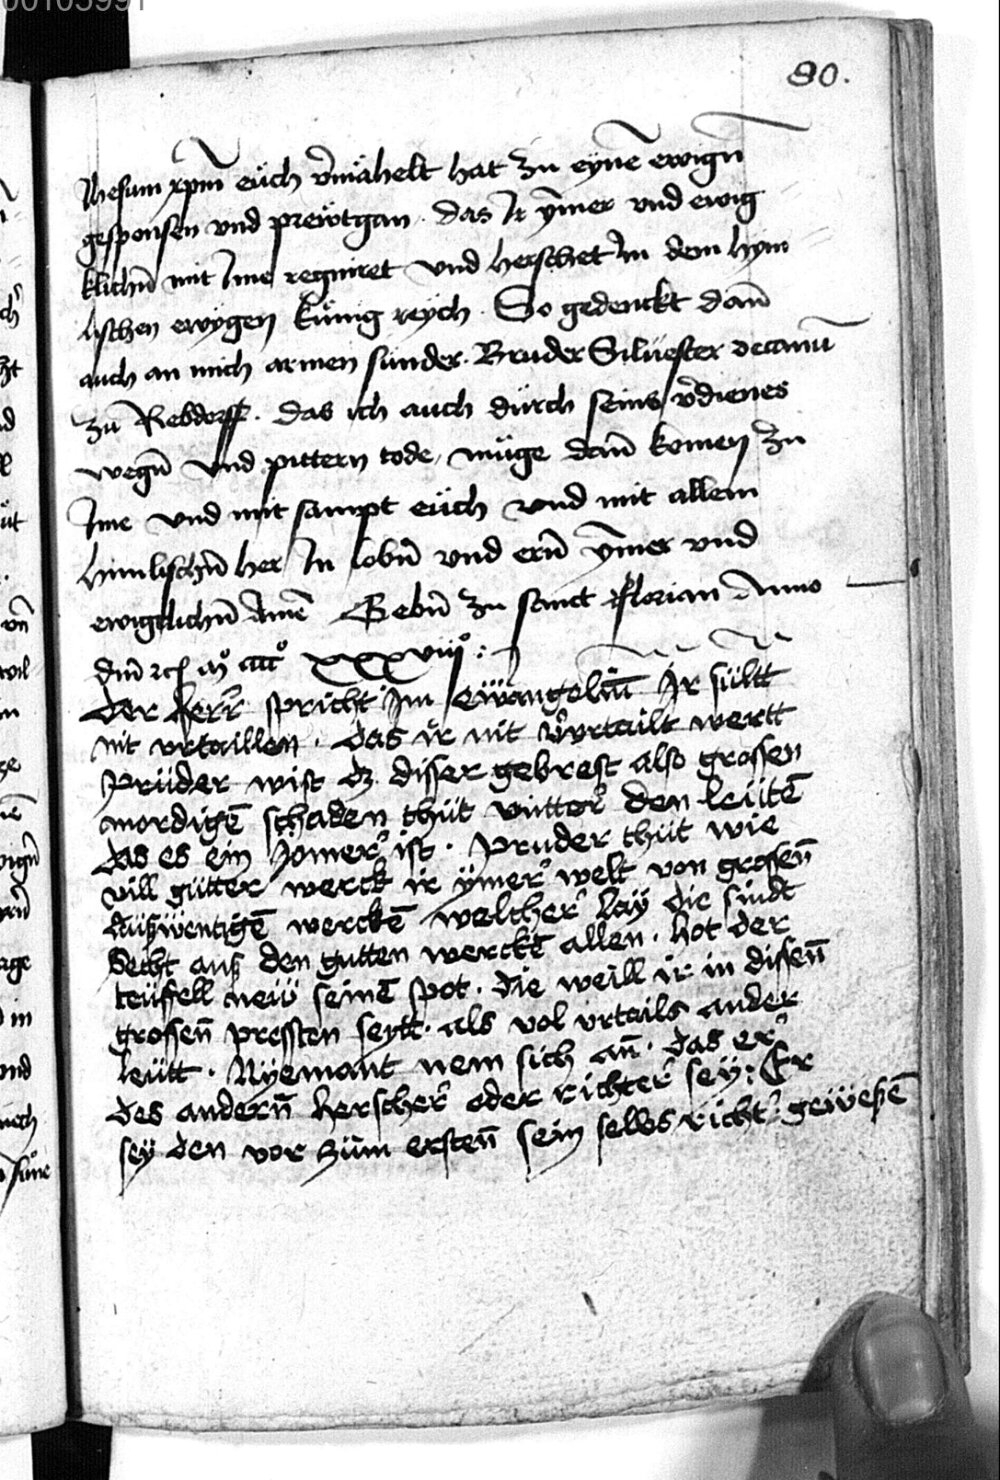 00103991
80.
Jhesum xpm̄ eüch v̄mähelt hat zu eynē ewign̄
gesponsen und preẅtgan. das Ir ÿm̄er und ewig
klichn̄ mit Ime regniret und herschet In dem hym
lischen ewygen künig reych. So gedenckt dan̄
auch an mich armen sünder. Bruder Siluester decanū
zu Rebdorff. das ich auch durch seins v̄dienes
wegn̄ und pittern tode, müge dan̄ komen zu
Ime und mit sampt eüch und mit allem
himlischn̄ her In lobn̄ und ern̄ ÿm̄er und
ewigklichn̄ Amē Gebn̄ zu sanct florian Anno
dm̄ xxxviij°:
Der herr spricht Im ewangeliū Ir sültt
nit urtaillen. das ir nit v̄urtailt wertt
Prüder wist dz disser gebrest also grossen
mordigē schaden thüt vntter den leütē
das es ein Jomer ist. pruder thüt wie
vill gütter werck ir ÿmer welt von grossen̄
außwentigē werckē welcher lay die sindt
Secht auß den gutten werckē allen. hot der
teüffell neü seinē spot. die weill ir in dissen̄
grossen̄ pressten seytt. als vol urtails ander
leütt. Nyemant nem sich an̄. das er
des andern̄ herscher oder richter sey: Er
sey den vor züm ersten̄ sein selbs richt' geweßē